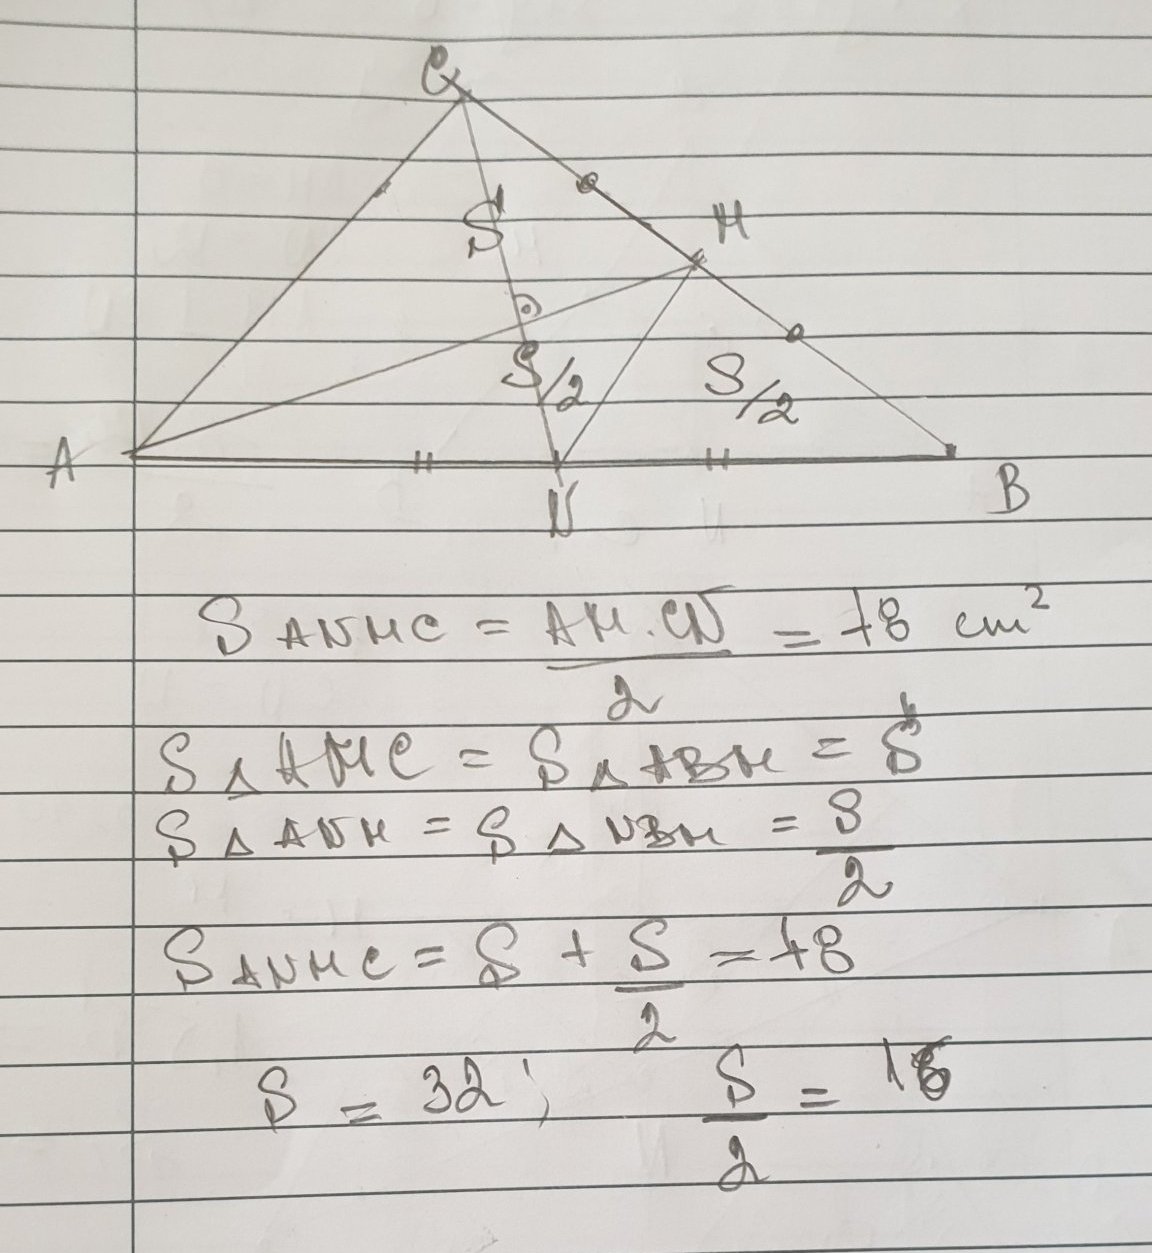 C
M
S
S/2
S/2
A
N
B
S ANMC = AM.CN/2 = 48 cm²
S △ AMC = S △ ABM = S
S △ ANM = S △ NBM = S/2
S ANMC = S + S/2 = 48
S = 32 ; S/2 = 16